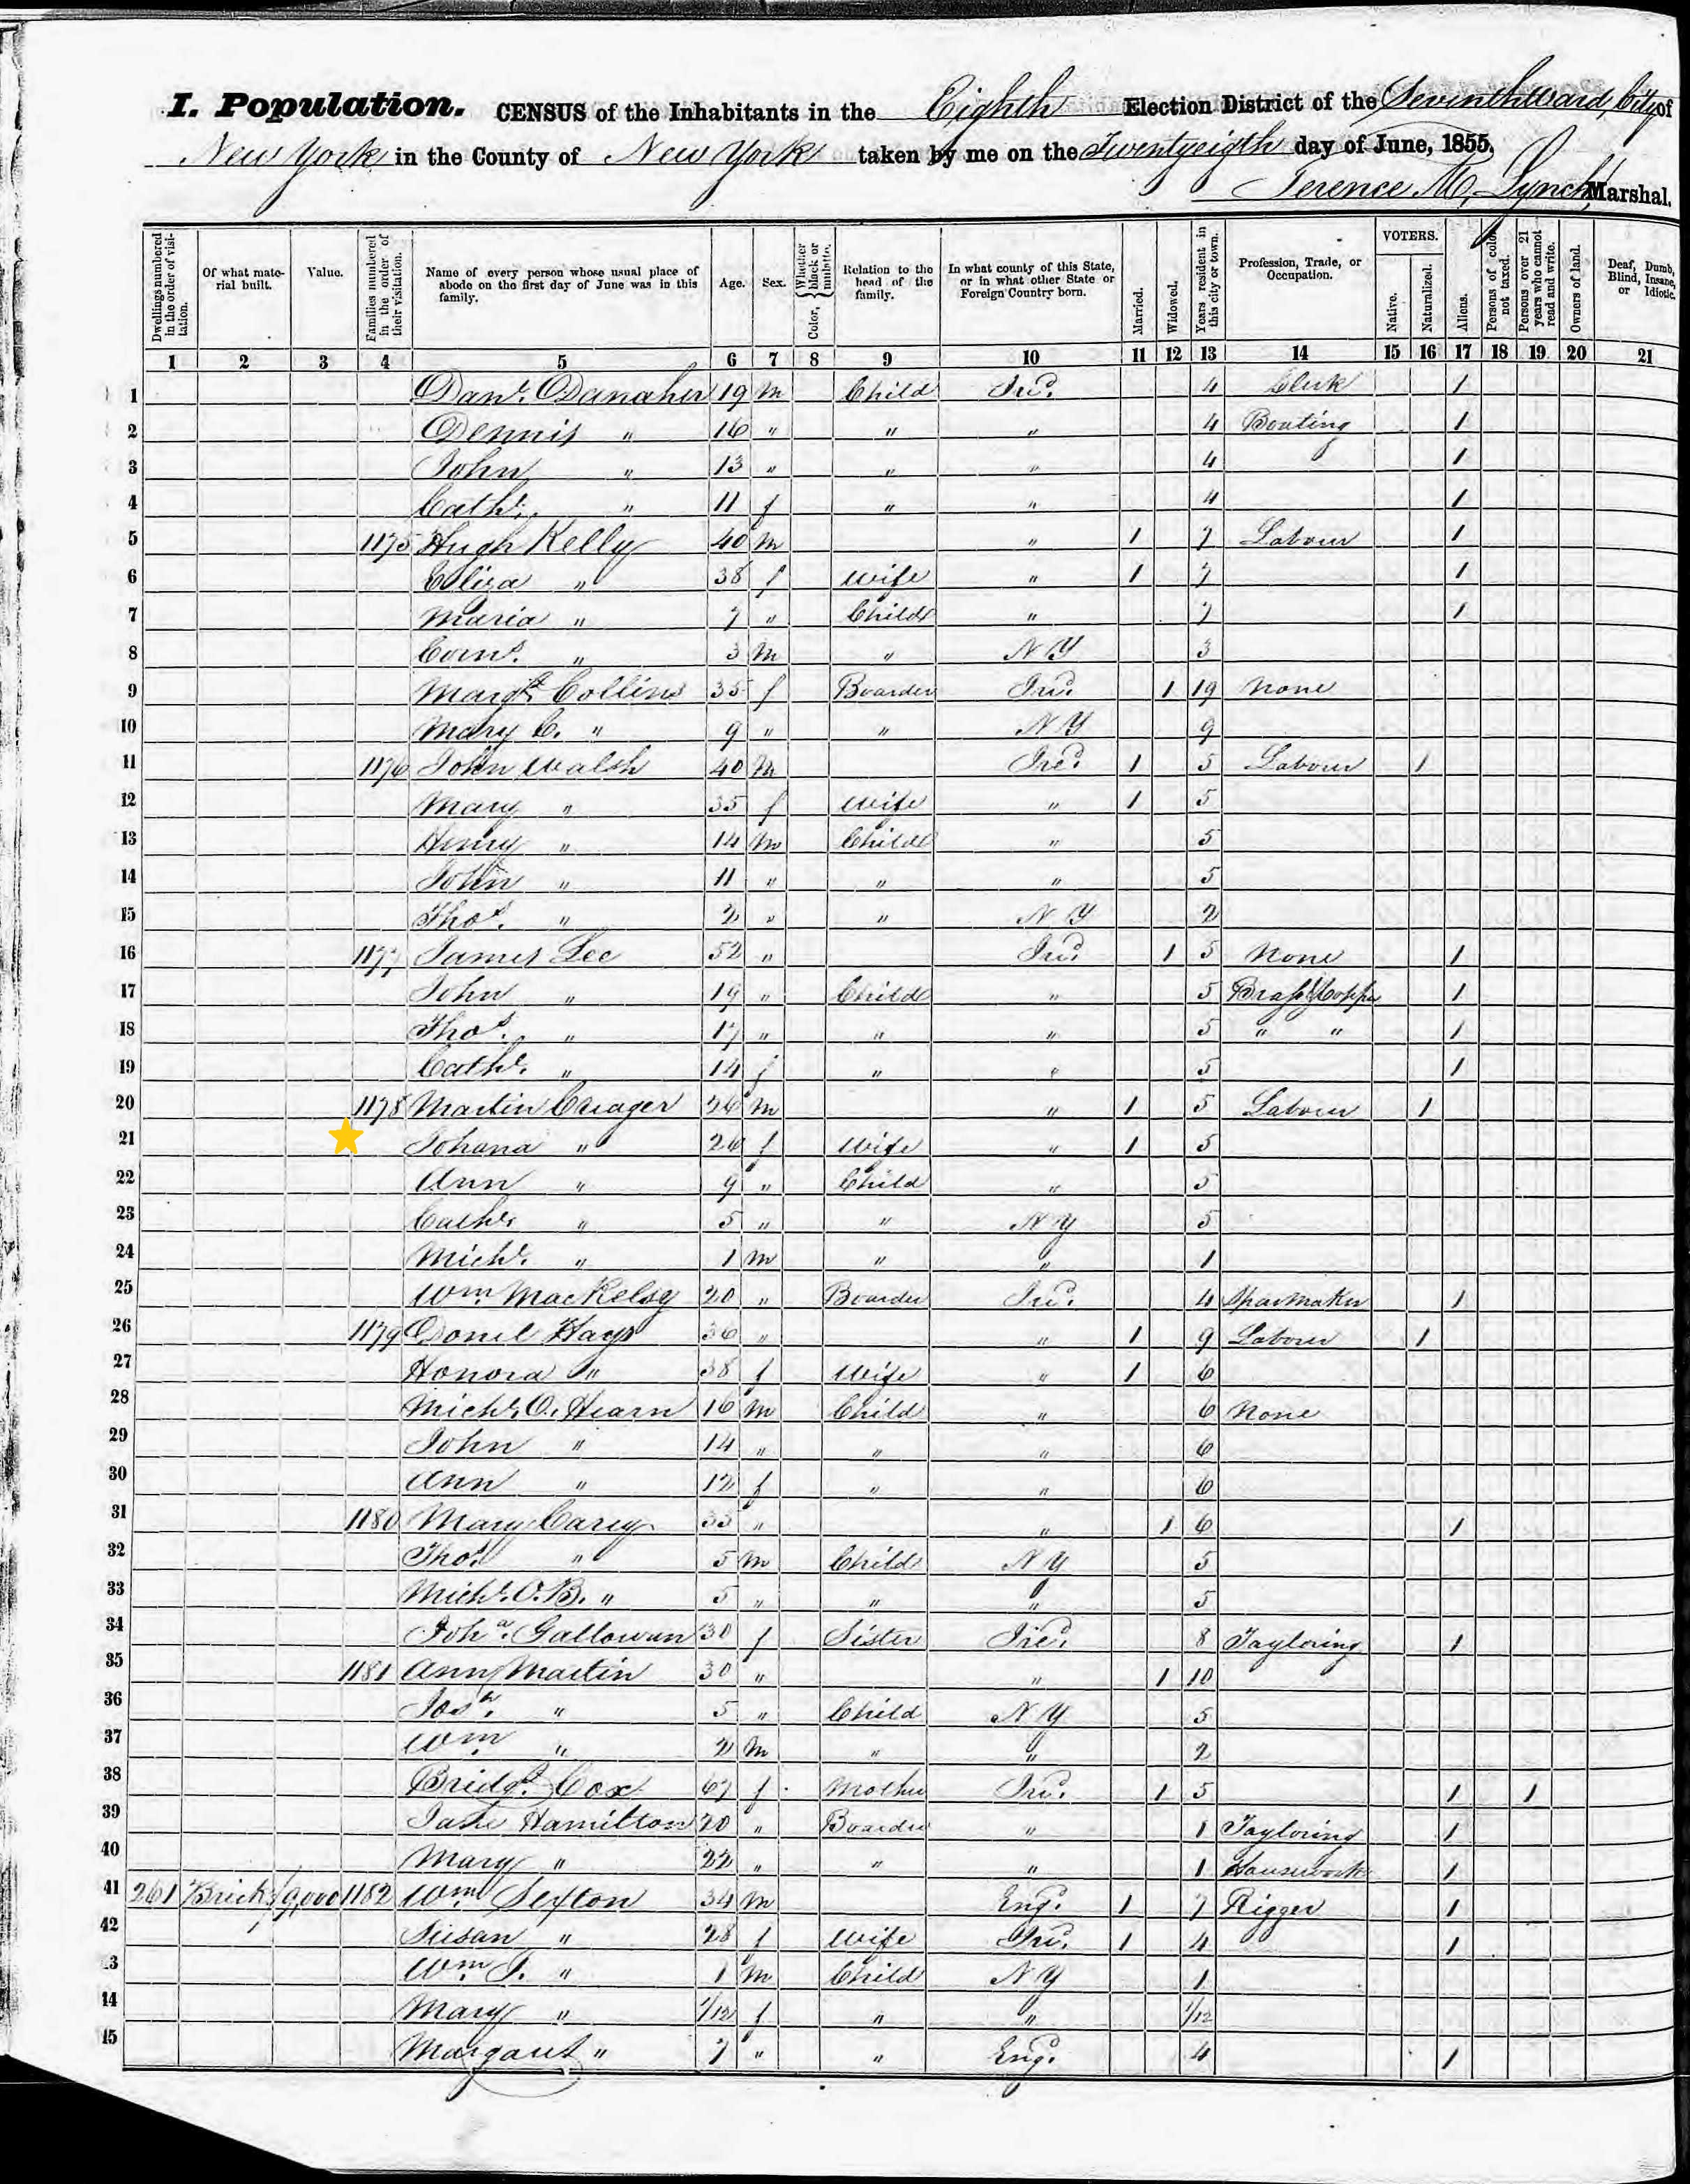 I. Population. CENSUS of the Inhabitants in the Eighth Election District of the Seventh Ward, City of
New York in the County of New York taken by me on the Twentyeigth day of June, 1855.
Terence M. Lynch Marshal.
Dwellings numbered in the order of visitation. Of what material built. Value. Families numbered in the order of their visitation. Name of every person whose usual place of abode on the first day of June was in this family. Age. Sex. Color, Whether black or mulatto. Relation to the head of the family. In what county of this State, or in what other State or Foreign Country born. Married. Widowed. Years resident in this city or town. Profession, Trade, or Occupation. VOTERS. Native. Naturalized. Aliens. Persons of color not taxed. Persons over 21 years who cannot read and write. Owners of land. Deaf, Dumb, Blind, Insane, or Idiotic.
1 2 3 4 5 6 7 8 9 10 11 12 13 14 15 16 17 18 19 20 21
1 Danl. Danaher 19 m Child Ire. 4 Clerk 1
2 Dennis " 16 " " " 4 Boating 1
3 John " 13 " " " 4 1
4 Cathe. " 11 f " " 4 1
5 1175 Hugh Kelly 40 m " 1 7 Labour 1
6 Eliza " 38 f Wife " 1 7 1
7 Maria " 7 " Child " 7 1
8 Corns. " 3 m " N Y 3
9 Margt. Collins 35 f Boarder Ire. 1 19 None
10 Mary C. " 9 " " N Y 9
11 1176 John Walsh 40 m Ire. 1 5 Labour 1
12 Mary " 35 f Wife " 1 5
13 Henry " 14 m Child " 5
14 John " 11 " " " 5
15 Thos. " 2 " " N Y 2
16 1177 James Lee 52 " Ire. 1 5 None 1
17 John " 19 " Child " 5 Brass 1
18 Thos. " 17 " " " 5 " " 1
19 Cathe. " 14 f " " 5 1
20 1178 Martin Creager 26 m " 1 5 Labour 1
21 Johana " 26 f Wife " 1 5
22 Ann " 9 " Child " 5
23 Cathe. " 5 " " N Y 5
24 Michl. " 1 m " " 1
25 Wm. MacKelsy 20 " Boarder Ire. 4 Sparmaker 1
26 1179 Donil Hays 36 " " 1 9 Labour 1
27 Honora " 38 f Wife " 1 6
28 Michl. O. Hearn 16 m Child " 6 None
29 John " 14 " " " 6
30 Ann " 12 f " " 6
31 1180 Mary Carey 35 " " 1 6 1
32 Thos. " 5 m Child N Y 5
33 Michl. O.B. " 5 " " " 5
34 Joha. Gallowan 30 f Sister Ire. 8 Tayloring 1
35 1181 Ann Martin 30 " " 1 10
36 " 5 " Child N Y 5
37 Wm " 2 m " " 2
38 Bridgt. Cox 67 f Mother Ire. 1 5 1 1
39 Jane Hamilton 20 " Boarder " 1 Tayloring 1
40 Mary " 22 " " " 1 Housework 1
41 261 Brick 9,000 1182 Wm Sexton 34 m Eng. 1 7 Rigger 1
42 Susan " 28 f Wife Ire. 1 4 1
3 Wm. J. " 1 m Child N Y 1
14 Mary " 1/12 f " " 1/12
15 Margaret " 7 " " Eng. 4 1